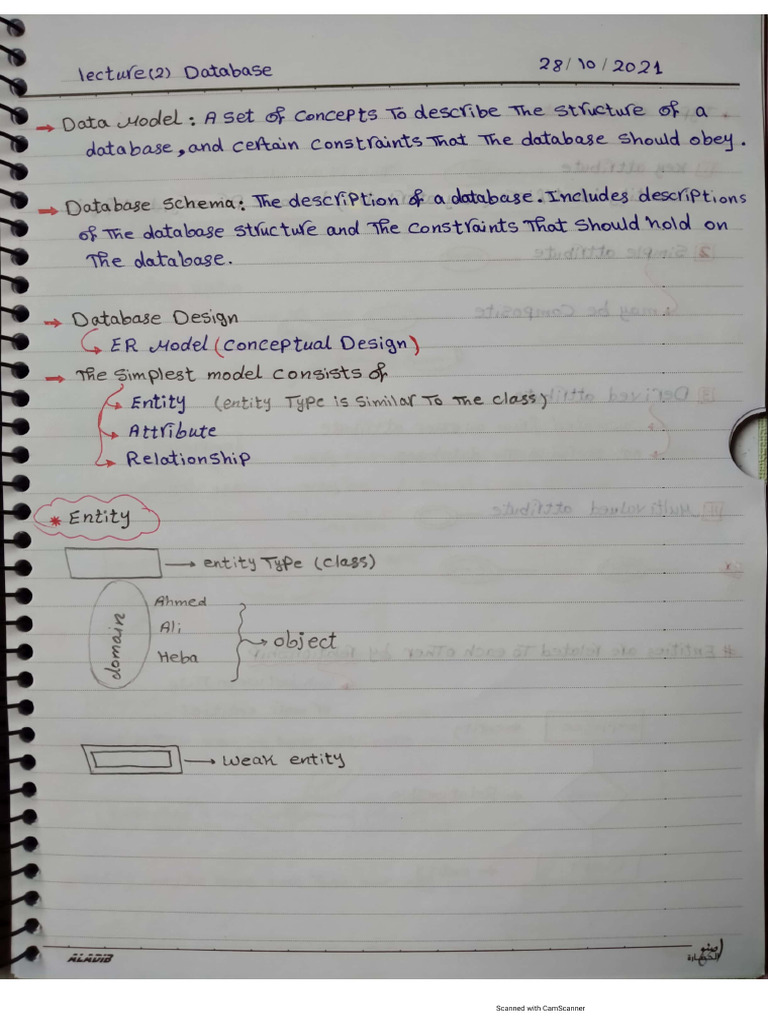 lecture(2) Database 28/10/2021
→ Data Model: A set of concepts To describe The structure of a
database, and certain constraints That The database should obey.
→ Database Schema: The description of a database. Includes descriptions
of The database structure and The constraints That should hold on
The database.
→ Database Design
ER Model (Conceptual Design)
→ The simplest model consists of
Entity (entity Type is similar To The class)
Attribute
Relationship
* Entity
→ entity Type (class)
domain
Ahmed
Ali
Heba
→ object
→ weak entity
ALADIB
Scanned with CamScanner